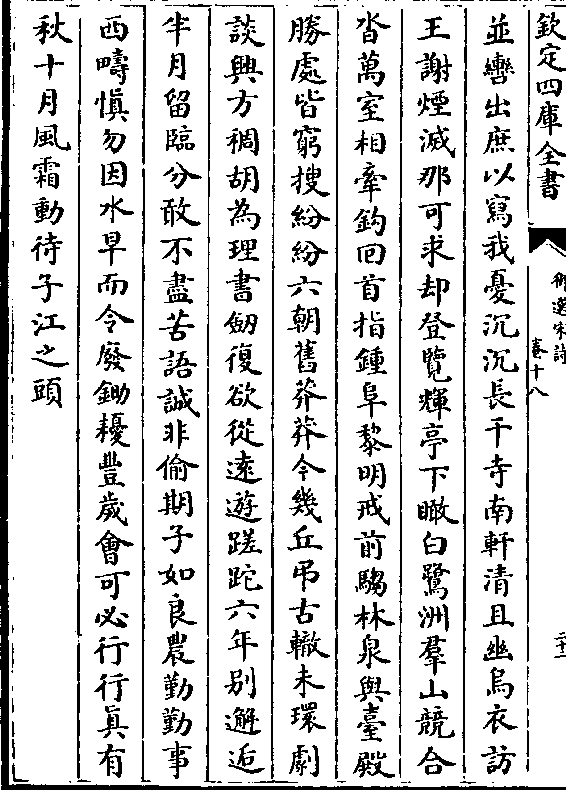 欽定四庫全書
御選宋詩
卷十八
二十二
並轡出庶以寫我憂沉沉長干寺南軒清且幽烏衣訪
王謝煙滅那可求却登覽輝亭下瞰白鷺洲羣山競合
沓萬室相牽鈎回首指鍾阜黎明戒前騶林泉與臺殿
勝處皆窮搜紛紛六朝舊莽莽今幾丘弔古轍未環劇
談興方稠胡為理書劒復欲從遠遊蹉跎六年别邂逅
半月留臨分敢不盡苦語誠非偷期子如良農勤勤事
西疇慎勿因水旱而令廢鋤耰豐歲會可必行行真有
秋十月風霜動待子江之頭